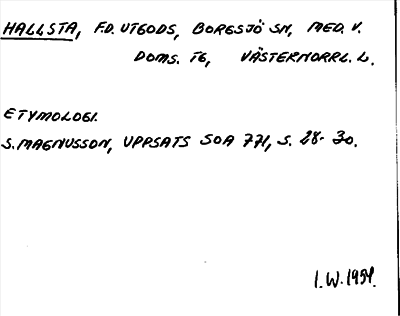 HALLSTA, F.D. UTGODS, BORGSJÖ SN, MED. V.
DOMS. TG, VÄSTERNORRL. L.
ETYMOLOGI.
S. MAGNUSSON, UPPSATS SOA 771, S. 28-30.
I.W. 1954.